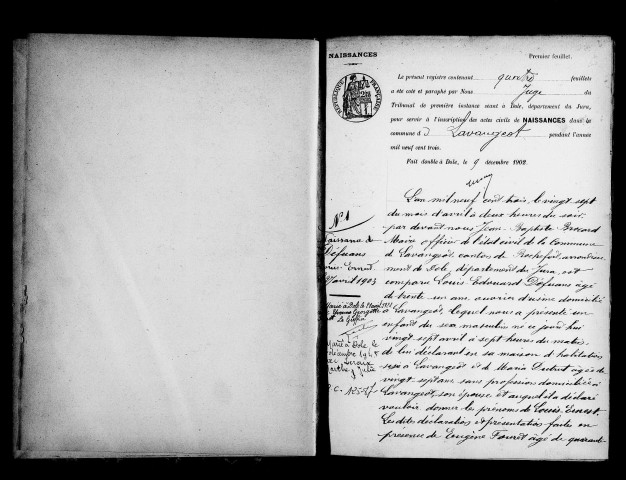 NAISSANCES
Premier feuillet.
RÉPUBLIQUE FRANÇAISE
Le présent registre contenant quatre feuillets
a été coté et paraphé par Nous Juge du
Tribunal de première instance séant à Dole, département du Jura,
pour servir à l'inscription des actes civils de NAISSANCES dans la
commune d Lavangeot pendant l'année
mil neuf cent trois.
Fait double à Dole, le 9 décembre 1902.
N° 1
Naissance de
Défuans
Ernest
avril 1903
Marié à Dole le
Marié à Dole le
décembre
L'an mil neuf cent trois, le vingt sept
du mois d'avril à deux heures du soir,
par devant nous Jean Baptiste Brocard
Maire officier de l'état civil de la Commune
d Lavangeot canton de Rochefort, arrondisse
ment de Dole, département du Jura, est
comparu Louis Edouard Défuans âgé
de trente un ans, ouvrier d'usine domicilié
à Lavangeot, lequel nous a présenté un
enfant du sexe masculin né ce jourd'hui
vingt sept avril à sept heures du matin,
de lui déclarant en sa maison d'habitation
sise à Lavangeot et d Maria âgée de
vingt-sept ans sans profession domiciliée à
Lavangeot, son épouse et auquel il a déclaré
vouloir donner les prénoms de Louis Ernest.
Les dites déclaration et présentation faites en
présence de Eugène âgé de quarante